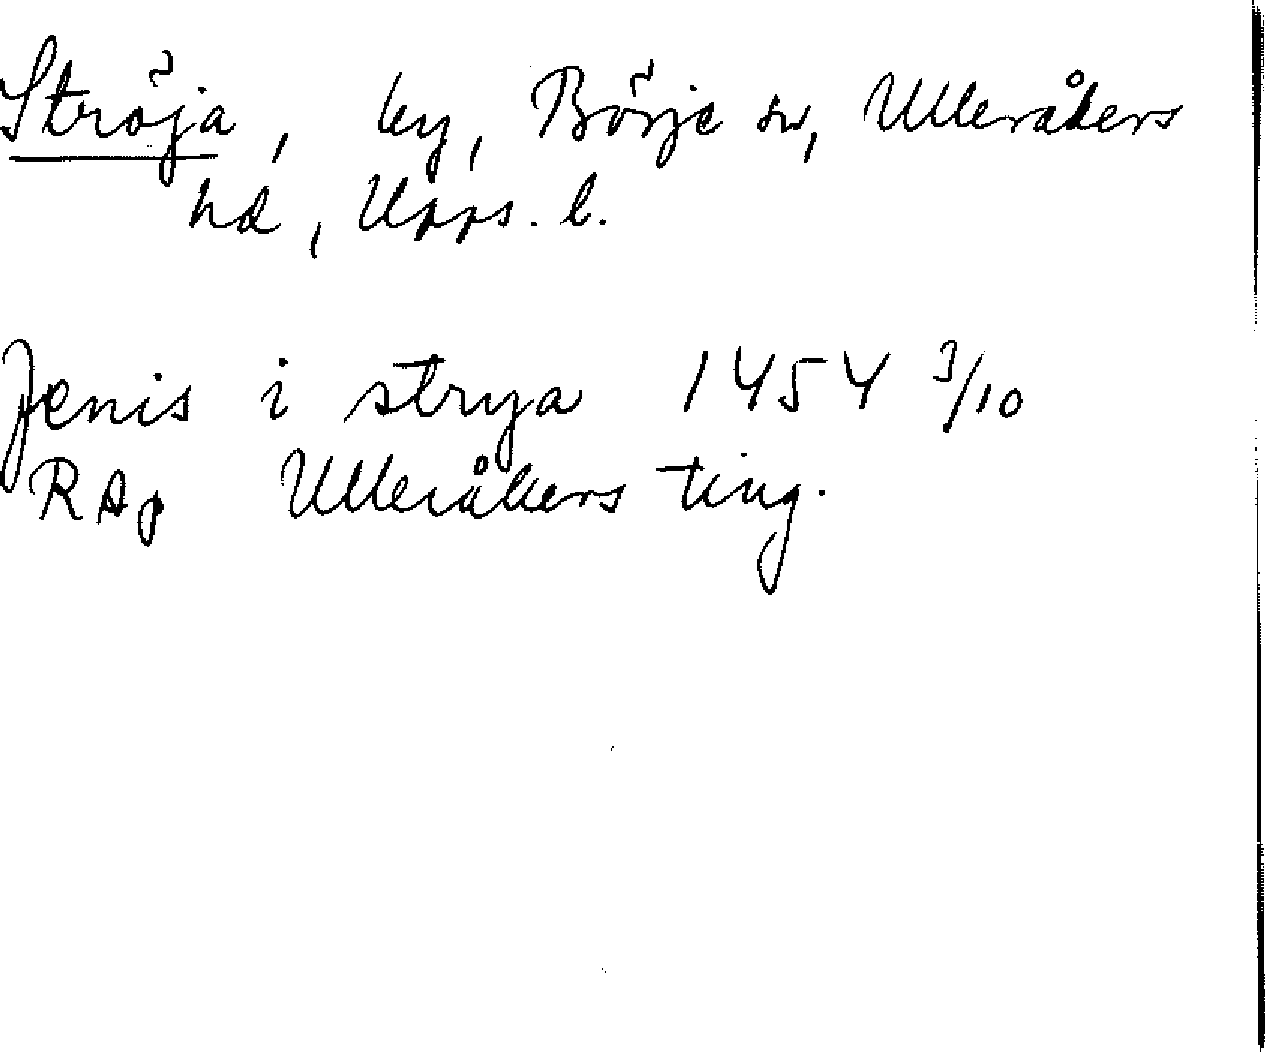 Ströja, by, Börje sn, Ulleråkers
hd, Upps. l.
Jenis i strya 1454 3/10
RAp Ulleråkers ting.